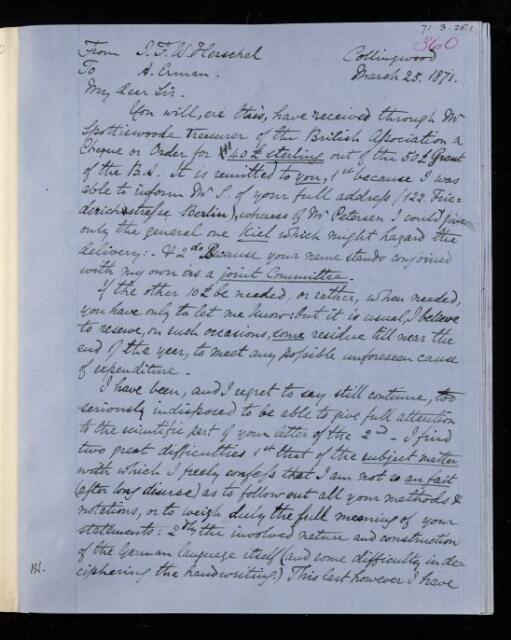 71.3.25.1
360
From J. F. W. Herschel
To A. Erman.
Collingwood
March 25. 1871.
My dear Sir.
You will, ere this, have received through Mr
Spottiswoode Treasurer of the British Association a
Cheque or Order for 40£ sterling out of the 50£ Grant
of the B.A. It is remitted to you, 1st because I was
able to inform Mr S. of your full address (122. Frie-
derichstrasse Berlin), whereas of Mr Petersen I could give
only the general one Kiel which might hazard the
delivery:- & 2d. Because your name stands conjoined
with my own as a joint Committee.
If the other 10£ be needed, or rather, when needed,
you have only to let me know: but it is usual, I believe
to reserve, on such occasions, some residue till near the
end of the year, to meet any possible unforeseen cause
of expenditure.
I have been, and I regret to say still continue, too
seriously indisposed to be able to give full attention
to the scientific part of your letter of the 2nd - I find
two great difficulties 1st that of the subject matter
with which I freely confess that I am not so au fait
(after long disuse) as to follow out all your methods &
notations, or to weigh duly the full meaning of your
statements: 2dly the involved nature and construction
of the German language itself (and some difficulty in de-
ciphering the handwriting.) This last however I have